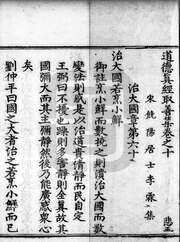 道德真經取善集卷之十
宋饒陽居士李霖集
治大國章第六十
治大國若烹小鮮
御註烹小鮮而數撓之則潰治大國而數
變法則惑是以治道貴清靜而民自定
王弼曰不擾也躁則多害靜則全真故其
國彌大而其主彌靜然後乃能廣感衆心
矣
劉仲平曰國之大者治之若烹小鮮而已